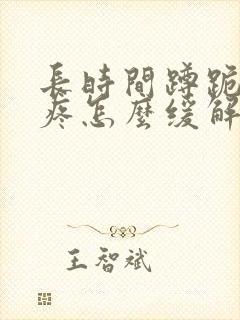 長時間蹲跪
疼怎麼緩解
王智斌